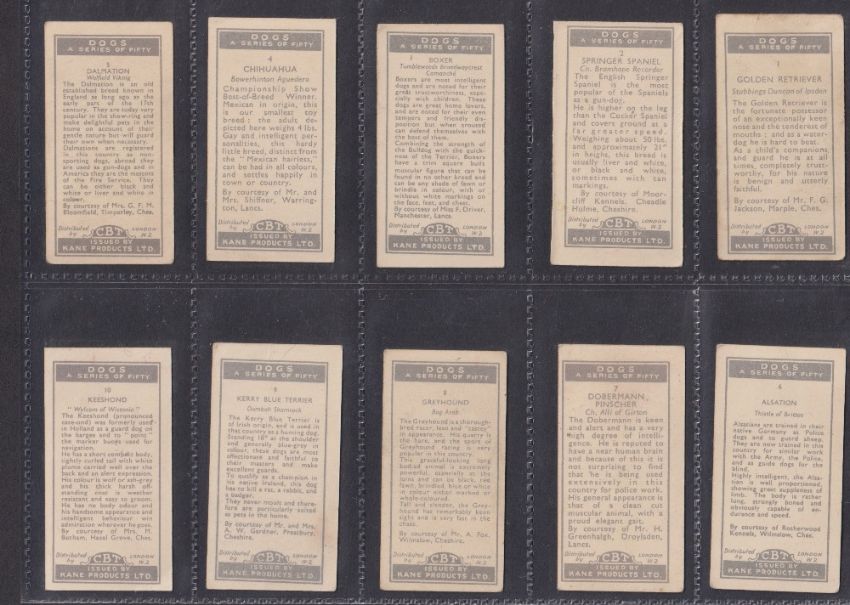 DOGS
A SERIES OF FIFTY
5
DALMATION
Wolfield Viking
The Dalmation is an old
established breed known in
England as long ago as the
early part of the 17th
century. They are today very
popular in the show-ring and
make delightful pets in the
home on account of their
gentle nature but will guard
their own when necessary.
Dalmatians are registered
in this country as non-
sporting dogs, abroad they
are used as gun-dogs and in
America they are the mascots
of the Fire Service. They
can be either black and
white or liver and white in
colour.
By courtesy of Mrs. G. F. M.
Bloomfield, Timperley, Ches.
Distributed by
CBT
LONDON W2
ISSUED BY
KANE PRODUCTS LTD.
DOGS
A SERIES OF FIFTY
4
CHIHUAHUA
Bowerhinton Aguedero
Championship Show
Best-of-Breed Winner.
Mexican in origin, this is
our smallest toy
breed: the adult de-
picted here weighs 4 lbs.
Gay and intelligent per-
sonalities, this hardy
little breed, distinct from
the "Mexican hairless,"
can be had in all colours,
and settles happily in
town or country.
By courtesy of Mr. and
Mrs. Shiffner, Warring-
ton, Lancs.
Distributed by
CBT
LONDON W2
ISSUED BY
KANE PRODUCTS LTD.
DOGS
A SERIES OF FIFTY
BOXER
Tumblewoods Broadwaycrest
Comanche
Boxers are most intelligent
dogs and are noted for their
great trustworthiness, espec-
ially with children. These
dogs are great home lovers,
and are noted for their even
tempers and friendly dis-
position but when aroused
can defend themselves with
the best of them.
Combining the strength of
the Bulldog with the quick-
ness of the Terrier, Boxers
have a trim square built
muscular figure that can be
found in no other breed and
can be any shade of fawn or
brindle in colour, with or
without white markings on
the face, feet, and chest.
By courtesy of Miss F. Driver,
Manchester, Lancs.
Distributed by
CBT
LONDON W2
ISSUED BY
KANE PRODUCTS LTD.
DOGS
A SERIES OF FIFTY
2
SPRINGER SPANIEL
Ch. Bramhope Recorder
The English Springer
Spaniel is the most
popular of the Spaniels
as a gun-dog.
He is higher on the leg
than the Cocker Spaniel
and covers ground at a
far greater speed.
Weighing about 50 lbs.
and approximately 21"
in height, this breed is
usually liver and white,
or black and white,
sometimes with tan
markings.
By courtesy of Moor-
cliff Kennels, Cheadle
Hulme, Cheshire.
Distributed by
CBT
LONDON W2
ISSUED BY
KANE PRODUCTS LTD.
DOGS
A SERIES OF FIFTY
1
GOLDEN RETRIEVER
Stubbings Duncan of Ipsden
The Golden Retriever is
the fortunate possessor
of an exceptionally keen
nose and the tenderest of
mouths; and as a water-
dog he is hard to beat.
As a child's companions,
and guard he is at all
times, completely trust-
worthy, for his nature
is benign and utterly
faithful.
By courtesy of Mr. F. G.
Jackson, Marple, Ches.
Distributed by
CBT
LONDON W2
ISSUED BY
KANE PRODUCTS LTD.
DOGS
A SERIES OF FIFTY
10
KEESHOND
The Keeshond (pronounced
case-ond) was formerly used
in Holland as a guard dog on
the barges and to "point"
the marker buoys used for
navigation.
He has a short compact body,
tightly curled tail with white
plume carried well over the
back and an alert expression.
His colour is wolf or ash-grey
and his thick harsh off-
standing coat is weather
resistant and easy to groom.
He has no body odour and
his handsome appearance and
intelligent behaviour win
admiration wherever he goes.
By courtesy of Mrs. M.
Botham, Hazel Grove, Ches.
Distributed by
CBT
LONDON W2
ISSUED BY
KANE PRODUCTS LTD.
DOGS
A SERIES OF FIFTY
9
KERRY BLUE TERRIER
The Kerry Blue Terrier is
of Irish origin, and is used in
that country as a hunting dog.
Standing 18" at the shoulder
and generally blue-grey in
colour, these dogs are most
affectionate and faithful to
their masters and make
excellent guards.
To qualify as a champion in
his native Ireland, this dog
has to kill a rat, a rabbit, and
a badger.
They never moult and there-
fore are particularly suited
as pets in the home.
By courtesy of Mr. and Mrs.
A. W. Gardner, Prestbury,
Cheshire.
Distributed by
CBT
LONDON W2
ISSUED BY
KANE PRODUCTS LTD.
DOGS
A SERIES OF FIFTY
8
GREYHOUND
The Greyhound is a thorough-
bred racer, lean and "racey"
in appearance. His quarry is
the hare and the sport of
Greyhound racing is very
popular in this country.
This graceful-looking long
bodied animal is extremely
powerful, especially at the
loins and can be black, red,
fawn, brindled, blue or white
in colour either marked or
whole-coloured.
Tall and slender, the Grey-
hound has remarkably keen
sight and is very fast in the
chase.
By courtesy of Mr. A. Fox,
Wilmslow, Cheshire.
Distributed by
CBT
LONDON W2
ISSUED BY
KANE PRODUCTS LTD.
DOGS
A SERIES OF FIFTY
7
DOBERMANN
PINSCHER
Ch. Alli of Girton
The Dobermann is keen
and alert and has a very
high degree of intelli-
gence. He is reputed to
have a near human brain
and because of this it is
not surprising to find
that he is being used
extensively in this
country for police work.
His general appearance is
that of a clean cut
muscular animal, with a
proud elegant gait.
By courtesy of Mr. H.
Greenhalgh, Droylsden,
Lancs.
Distributed by
CBT
LONDON W2
ISSUED BY
KANE PRODUCTS LTD.
DOGS
A SERIES OF FIFTY
6
ALSATION
Thistle of Brittas
Alsatians are trained in their
native Germany as Police
dogs and as guard sheep.
They are now trained in this
country for similar work
with the Army, the Police,
and as guide dogs for the
blind.
Highly intelligent, the Alsa-
tian is well proportioned,
showing great suppleness of
limb. The body is rather
long, strongly boned and
obviously capable of en-
durance and speed.
By courtesy of Rocherwood
Kennels, Wilmslow, Ches.
Distributed by
CBT
LONDON W2
ISSUED BY
KANE PRODUCTS LTD.